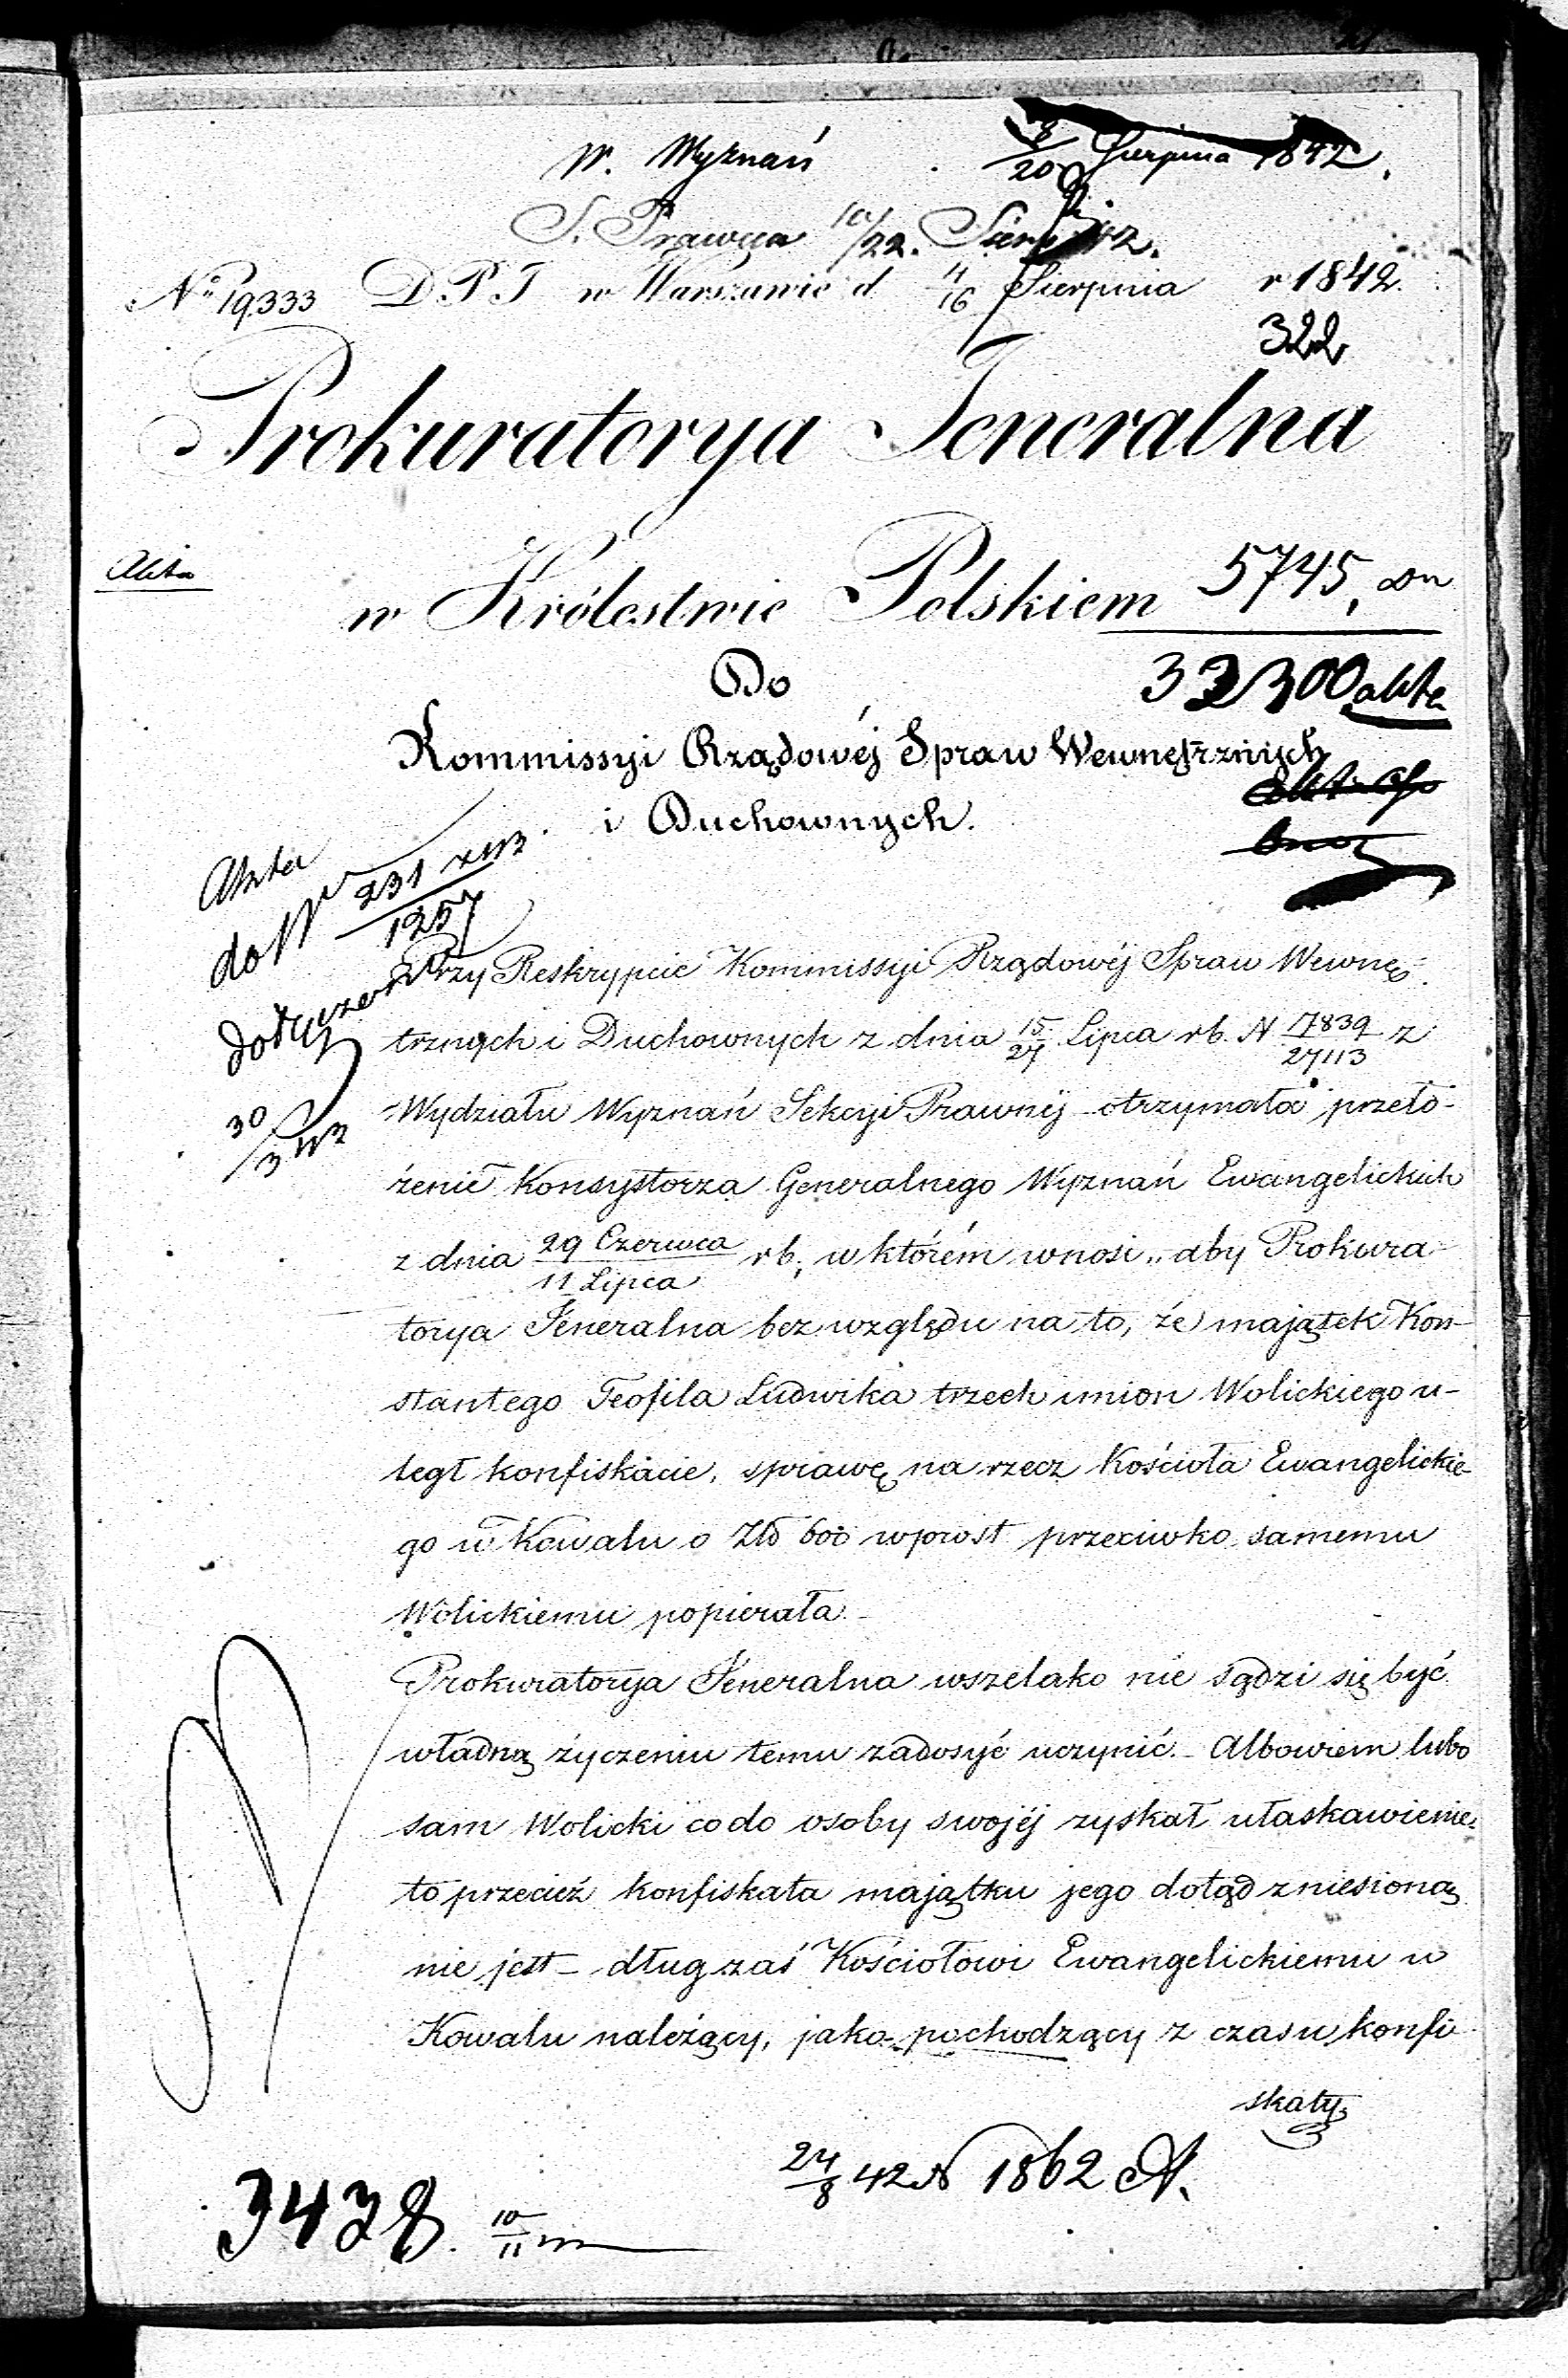 W. Wyznań 8/20 Sierpnia 1842.
S. Prawna 10/22. Sierp 42.
No 19333 D.P.J w Warszawie d 4/16 Sierpnia r 1842.
322
Prokuratorya Jeneralna
Akta
w Królestwie Polskiem 5745,
Do
33300 akta
Kommissyi Rządowéj Spraw Wewnętrznych
i Duchownych.
Akta
do Nr 231
1257
dołączone
30/3
Przy Reskrypcie Kommissyi Rządowéj Spraw Wewnę-
trznych i Duchownych z dnia 15/27 Lipca r b. N 7839/27113 z
Wydziału Wyznań Sekcyi Prawnéj otrzymała przeło-
żenie Konsystorza Generalnego Wyznań Ewangelickich
z dnia 29 Czerwca/11 Lipca r b, w którém wnosi „aby Prokura-
torya Jeneralna bez względu na to, że majątek Kon-
stantego Teofila Ludwika trzech imion Wolickiego u-
legł konfiskacie, sprawę na rzecz Kościoła Ewangelickie-
go w Kowalu o Złp 600 wprost przeciwko samemu
Wolickiemu popierała
Prokuratorya Jeneralna wszelako nie sądzi się być
władną życzeniu temu zadosyć uczynić. Albowiem lubo
sam Wolicki co do osoby swojéj zyskał ułaskawienie,
to przecież konfiskata majątku jego dotąd zniesioną
nie jest – dług zaś Kościołowi Ewangelickiemu w
Kowalu należący, jako pochodzący z czasu konfi-
skaty
24/8 42 N 1862 A.
3438. 10/11